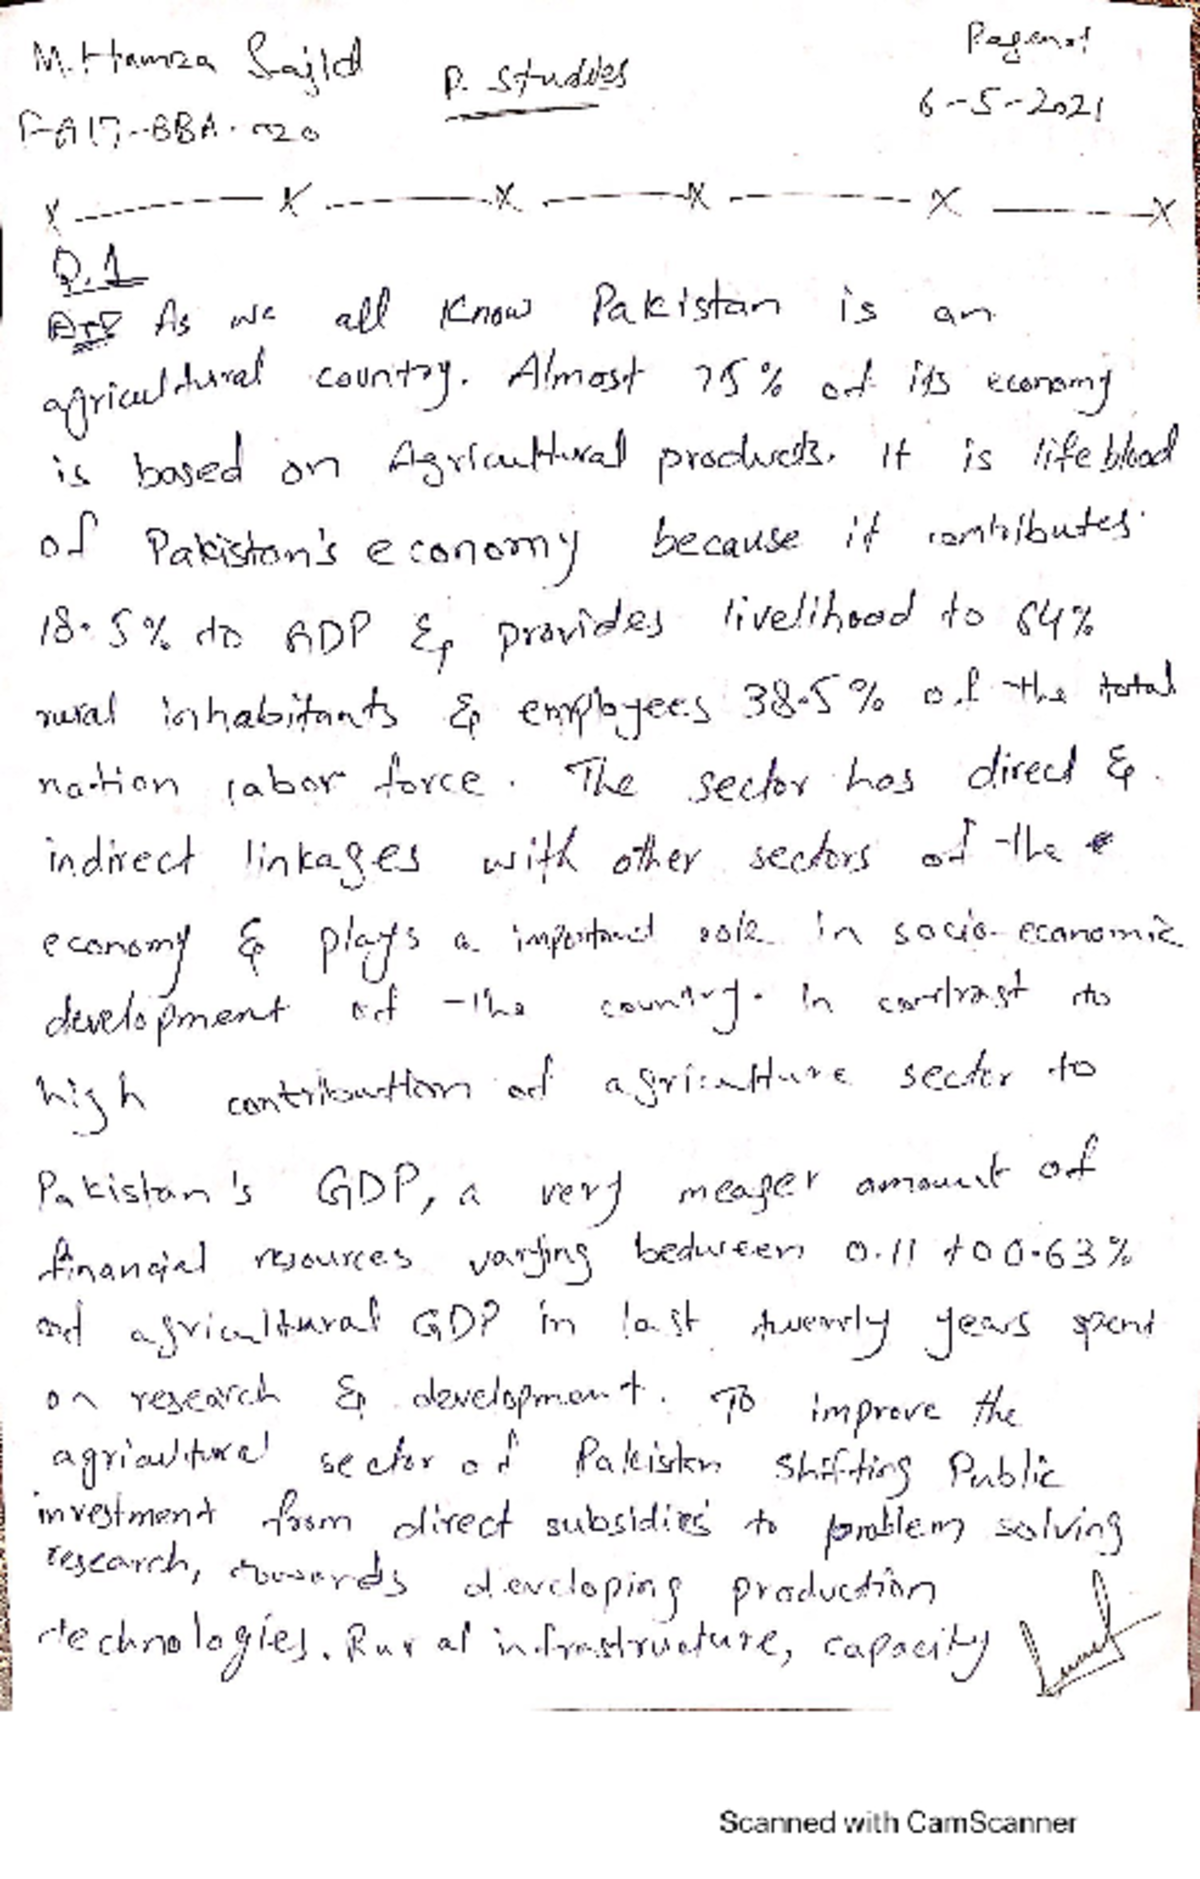 M. Hamza Sajid
P. Studies
Page no 1
FA17-BBA-020
6-5-2021
X ------ X ------ X ------ X ------ X ------ X
Q.1
As we all know Pakistan is an
agricultural country. Almost 75% of its economy
is based on Agricultural products. It is life blood
of Pakistan's economy because it contributes
18.5% to GDP & provides livelihood to 64%
rural inhabitants & employees 38.5% of the total
nation labor force. The sector has direct &
indirect linkages with other sectors of the
economy & plays a important role in socio-economic
development of the country. In contrast to
high contribution of agriculture sector to
Pakistan's GDP, a very meager amount of
financial resources varying between 0.11 to 0.63%
of agricultural GDP in last twenty years spent
on research & development. To improve the
agricultural sector of Pakistan shifting Public
investment from direct subsidies to problem solving
research, towards developing production
technologies. Rural infrastructure, capacity
Scanned with CamScanner